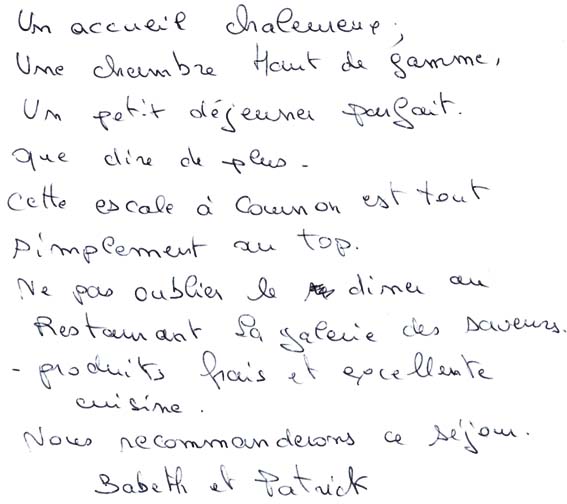 Un accueil chaleureux,
Une chambre Haut de gamme,
Un petit déjeuner parfait.
que dire de plus.
Cette escale à Cournon est tout
simplement au top.
Ne pas oublier le diner au
Restaurant la galerie des saveurs.
- produits frais et excellente
cuisine.
Nous recommanderons ce séjour.
Babeth et Patrick